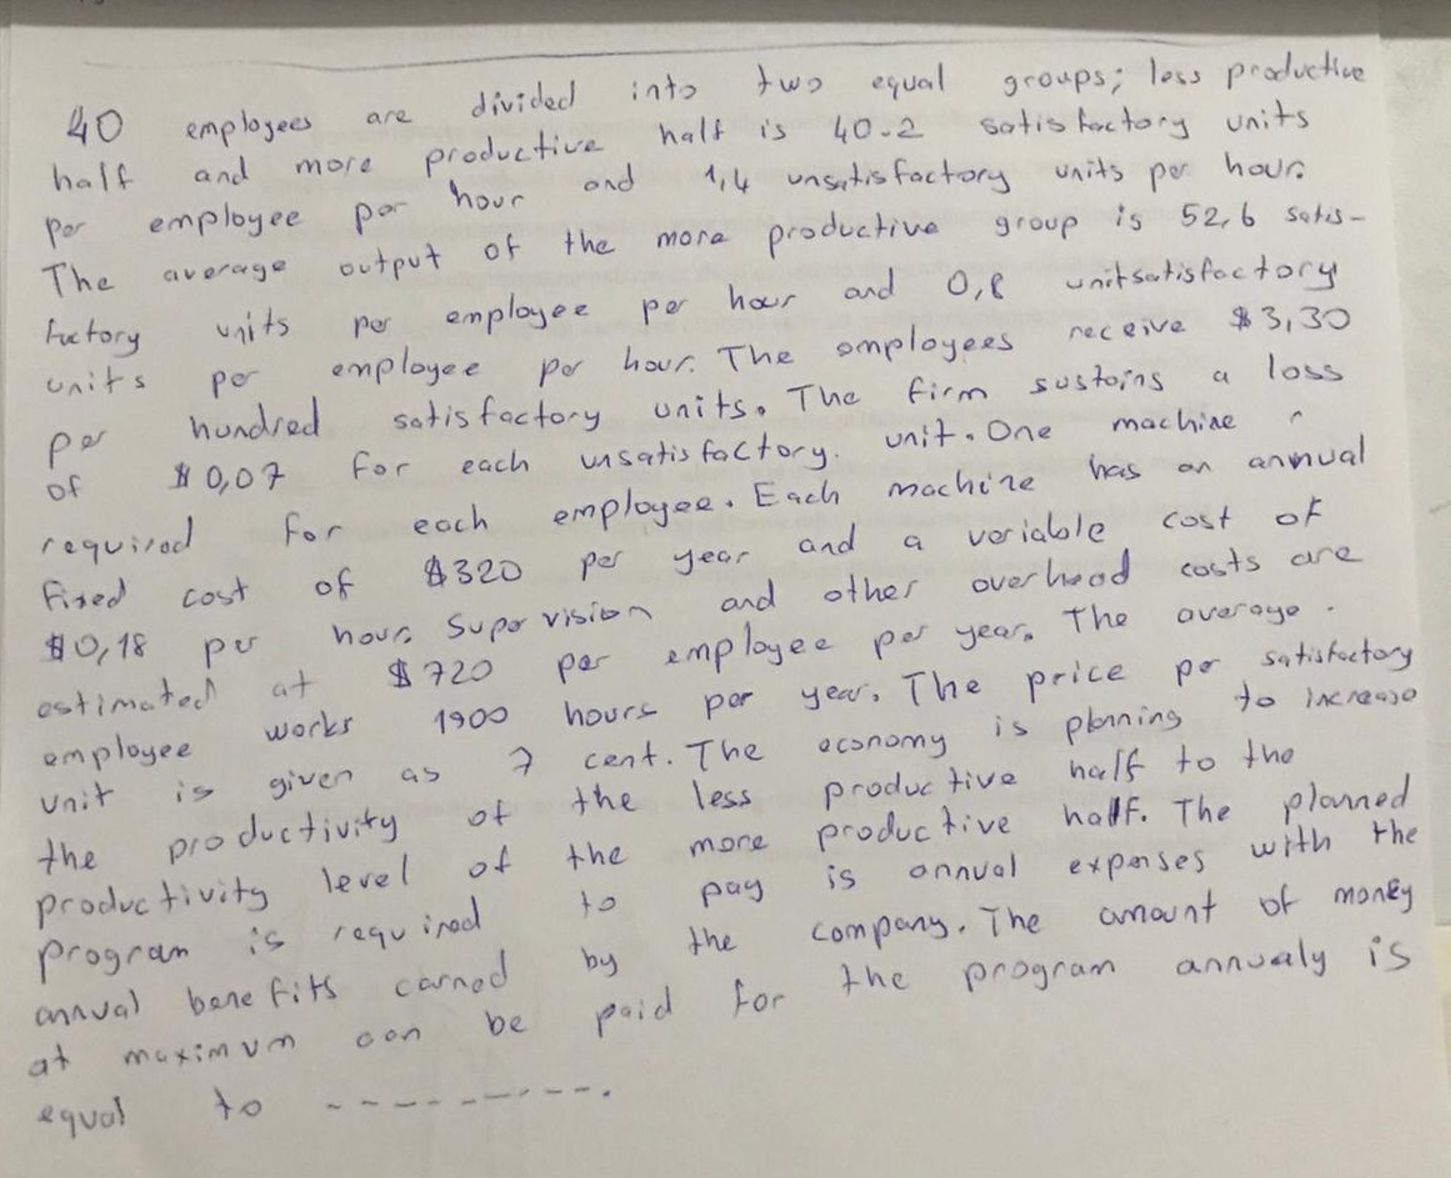 40 employees are divided into two equal groups; less productive
half and more productive half is 40.2 satisfactory units
per employee per hour and 1,4 unsatisfactory units per hour.
The average output of the more productive group is 52,6 satis-
factory units per employee per hour and 0,8 unitsatisfactory
units per employee per hour. The employees receive $3,30
per hundred satisfactory units. The firm sustains a loss
of $0,07 for each unsatisfactory. unit. One machine
required for each employee. Each machine has an annual
fixed cost of $320 per year and a variable cost of
$0,18 per hour. Supervision and other overhead costs are
estimated at $720 per employee per year. The average.
employee works 1900 hours per year. The price per satisfactory
unit is given as 7 cent. The economy is planning to increase
the productivity of the less productive half to the
productivity level of the more productive half. The planned
program is required to pay is annual expenses with the
annual benefits carned by the company. The amount of money
at maximum can be paid for the program annualy is
equal to ----------.